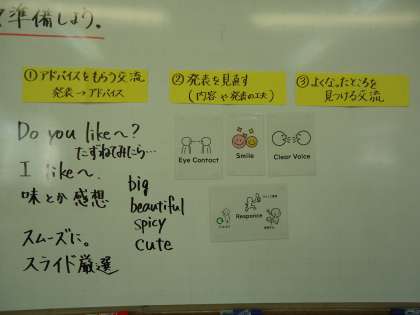 準備しよう。
①アドバイスをもらう交流
発表→アドバイス
②発表を見直す
(内容や発表の工夫)
③よくなったところを
見つける交流
Do you like~?
たずねてみたら…
I like~.
味とか感想
スムーズに。
スライド厳選
big
beautiful
spicy
cute
Eye Contact
Smile
Clear Voice
Responce